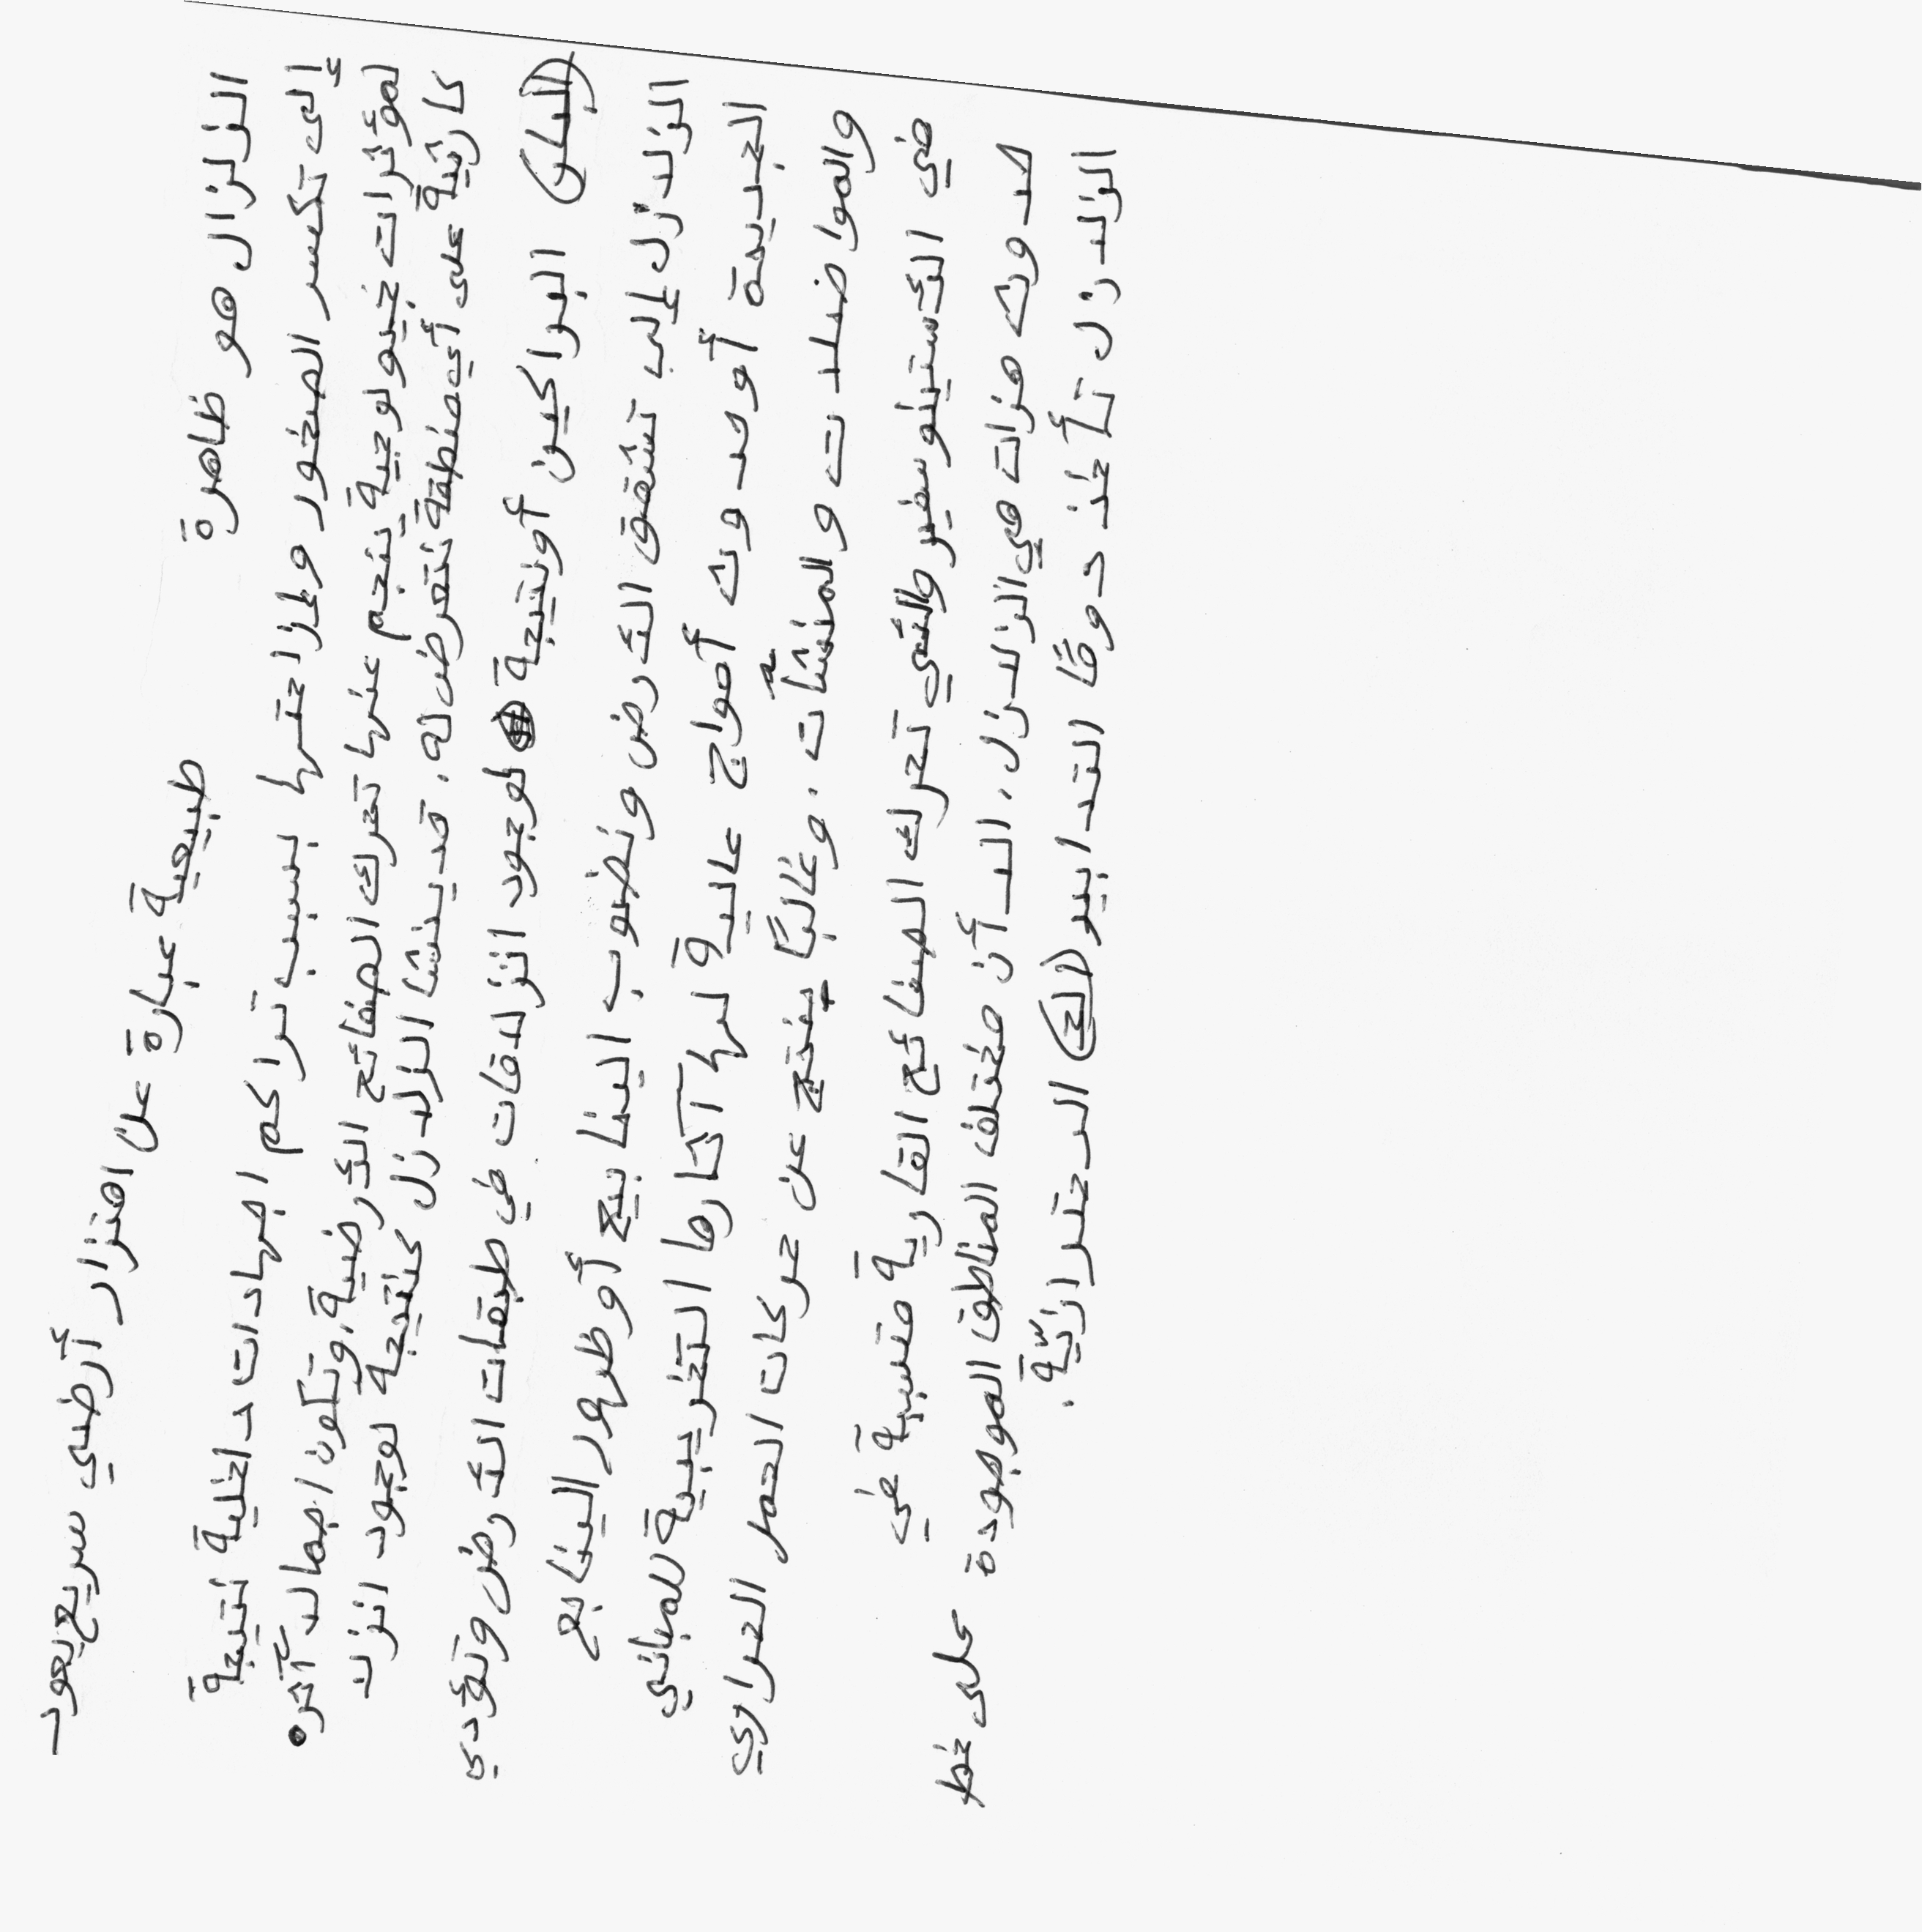 الزلزال هو ظاهرة طبيعية عبارة عن اهتزاز أرضي سريع يعود
إلى تكسر الصخور وإزاحتها بسبب تراكم اجهادات داخلية نتيجة
لمؤثرات جيولوجية ينجم عنها تحرك الصفائح الأرضية، وتكون اجمالاً آثره
كارثية على أي منطقة تتعرض له. قد ينشا الزلازل كنتيجة لوجود انزلا
البراكين أو نتيجة لوجود انزلاقات في طبقات الأرض وتؤدي
الزلازل إلى تشقق الأرض ونضوب الينابيع أو ظهور الينابع
الجديدة أو حدوث أمواج عالية لها آثارها التخريبية للمباني
والمواصلات والمنشآت. وغالبًا ينتج عن حركات الحمل الحراري
في الاستينوسفير والتي تحرك الصفائح القارية متسببة في
حدوث هزات هي الزلازل، الا أن مختلف المناطق الموجودة على خط
الزلازل تأخذ دوقا التدابير الاحترازيّة.